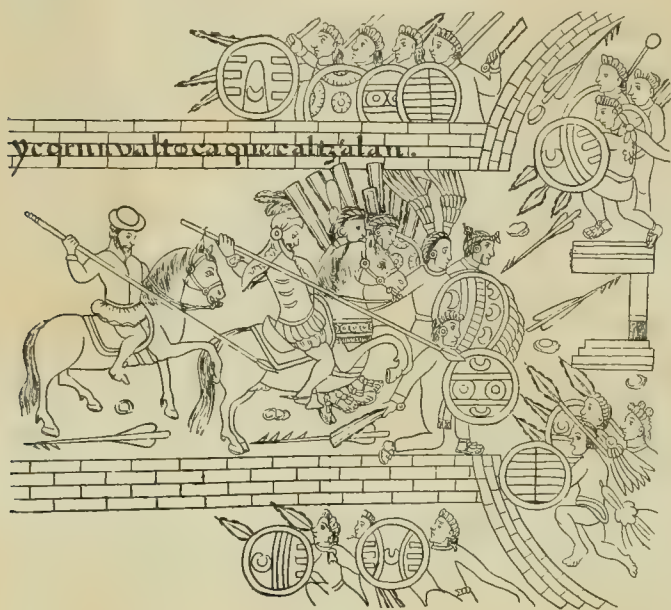 ycqrnnvaltocaque caltzalan.